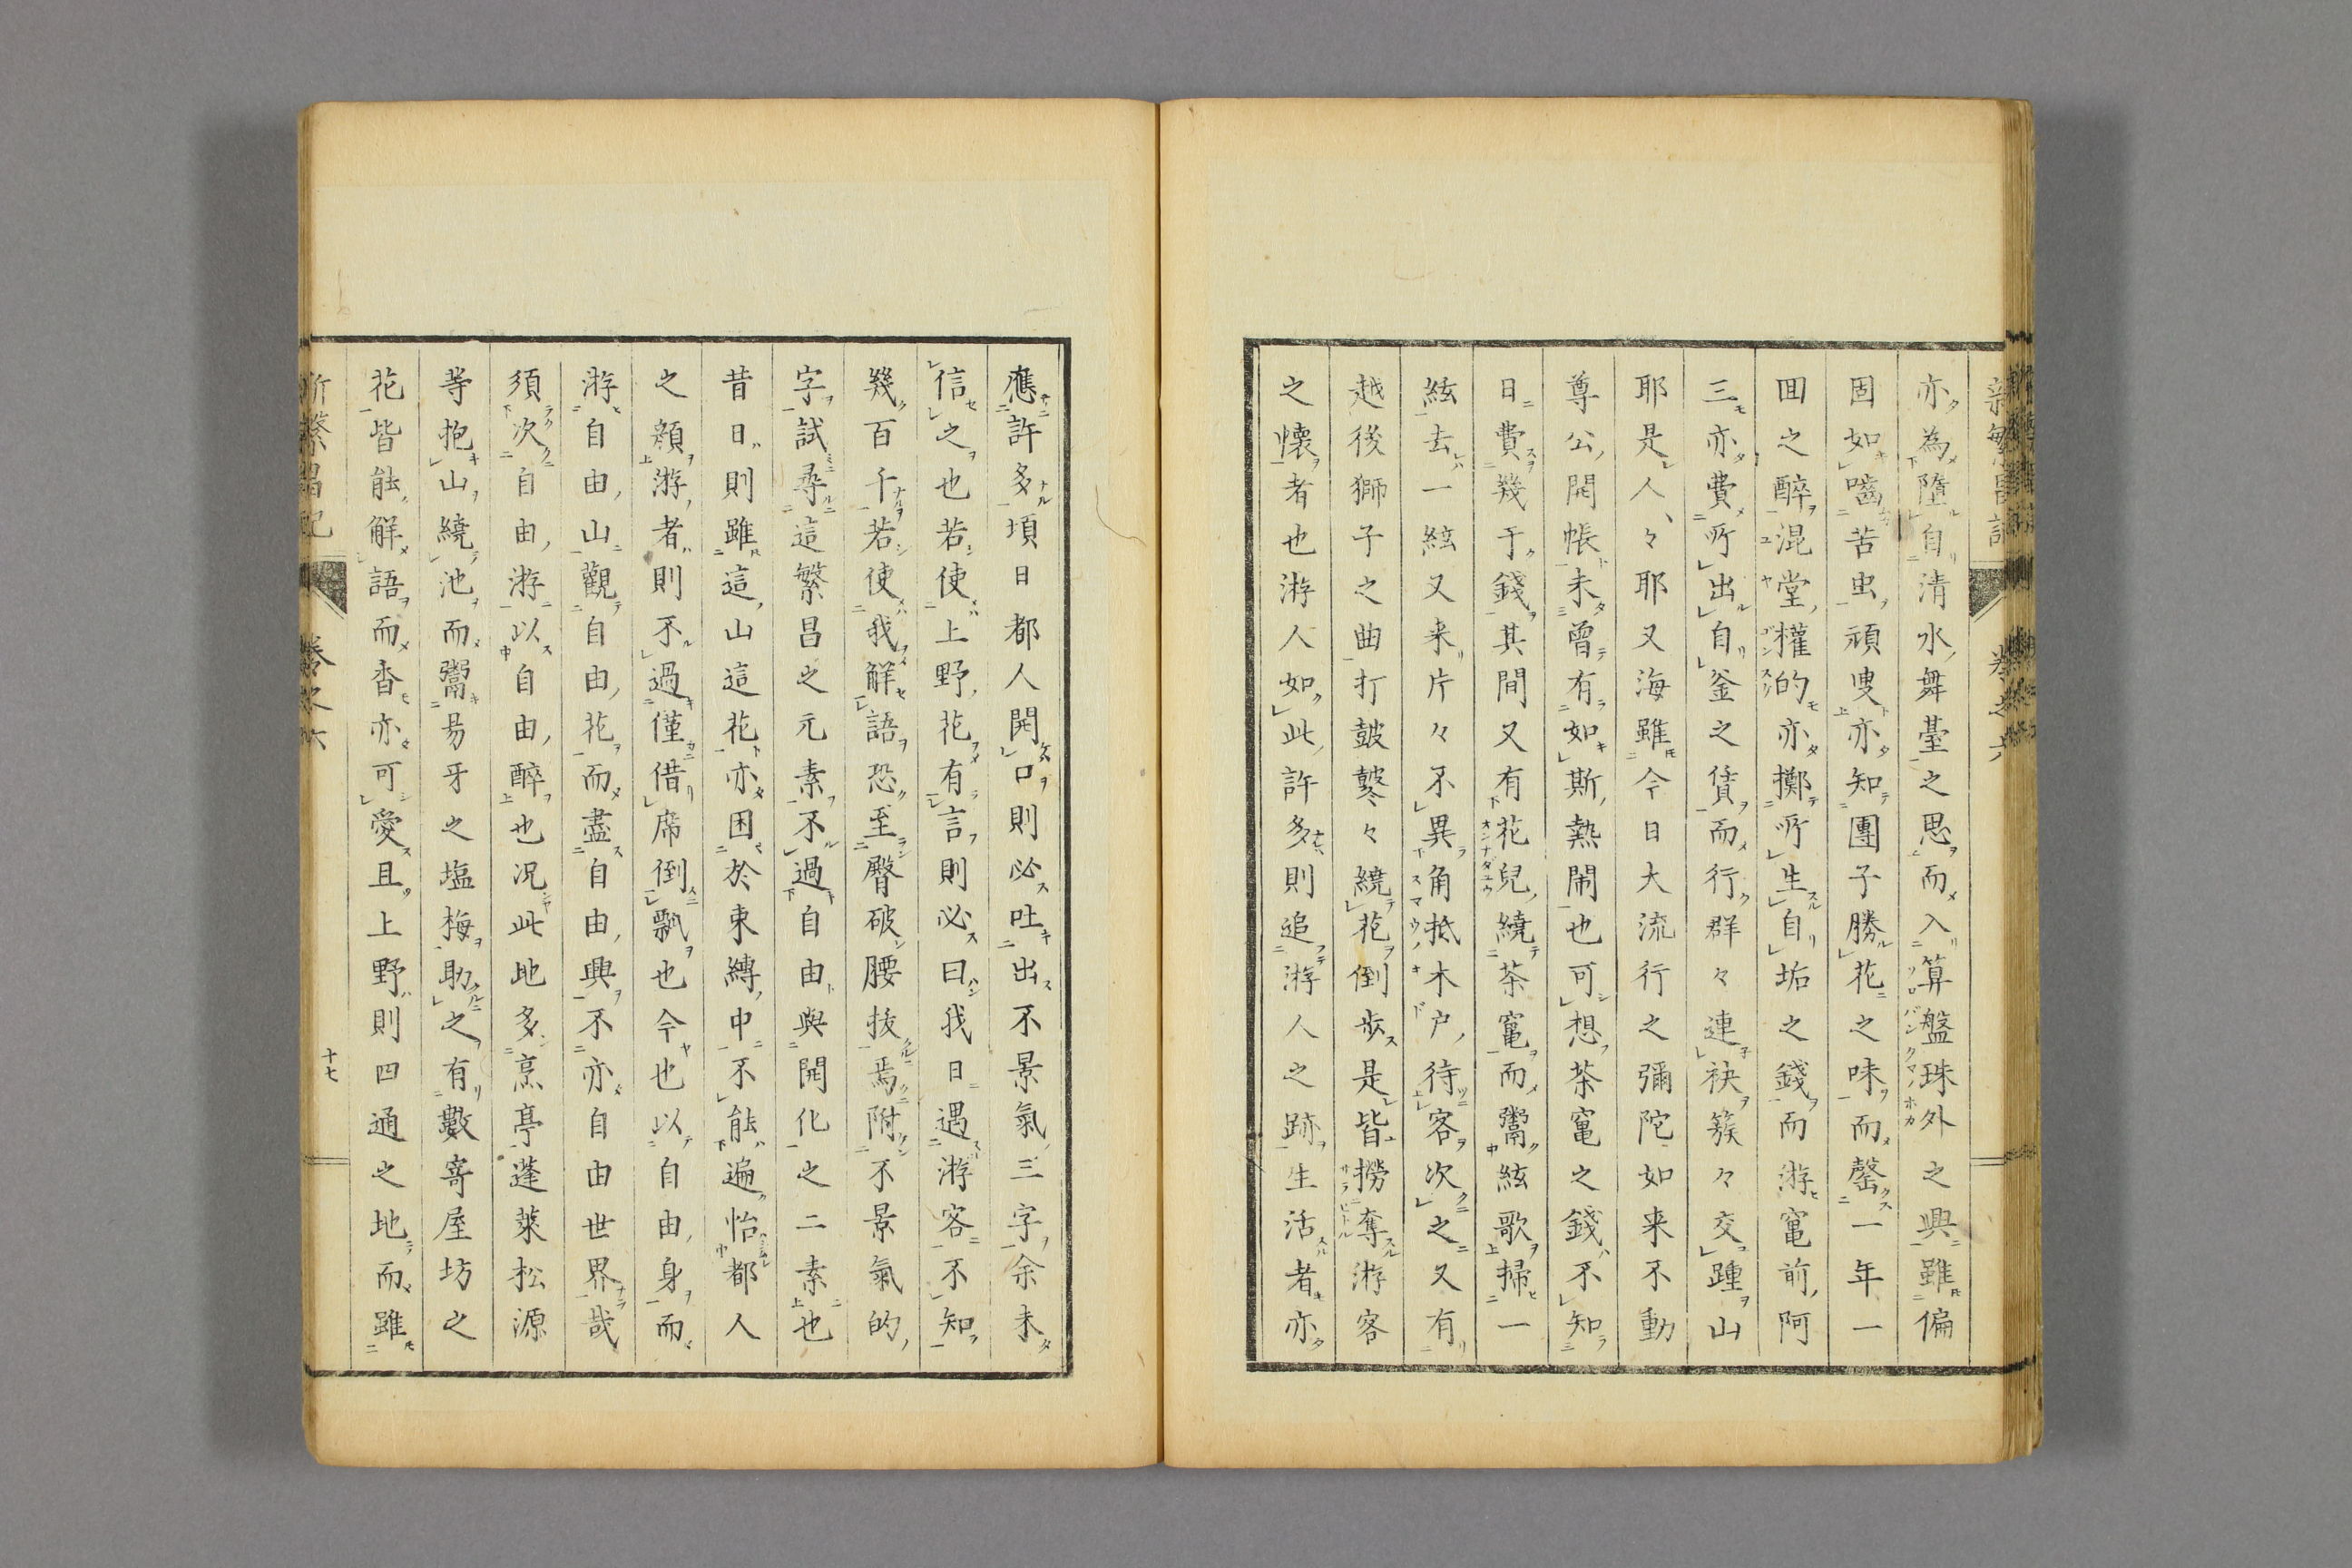 亦為墮自清水舞臺之思而入算盤珠外之興雖偏
固如嚙苦虫頑叟亦知團子勝花之味而罄一年一
囬之醉混堂權的亦擲所生自垢之錢而游竃前阿
三亦費所出自釜之賃而行群々連袂簇々交踵山
耶是人々耶又海雖今日大流行之彌陀如来不動
尊公開帳未曾有如斯熱閙也可想茶竃之錢不知
日費幾千錢其間又有花兒繞茶竃而鬻絃歌掃一
絃去一絃又来片々不異角抵木户待客次之又有
越後獅子之曲打皷鼕々繞花倒歩是皆撈奪游客
之懐者也游人如此許多則追游人之跡生活者亦
應許多項日都人開口則必吐出不景氣三字余未
信之也若使上野花有言則必曰我日遇游客不知
幾百千若使我解語恐至臀破腰抜焉附不景氣的
字試尋這繁昌之元素不過自由與開化之二素也
昔日則雖這山這花亦困於束縛中不能遍怡都人
之顔游者則不過僅借席倒瓢也今也以自由身而
游自由山觀自由花而盡自由興不亦自由世界哉
須次自由游以自由醉也况此地多烹亭蓬萊松源
等抱山繞池而鬻易牙之塩梅助之有數寄屋坊之
花皆能解語而香亦可愛且上野則四通之地而雖
卷之六
十七